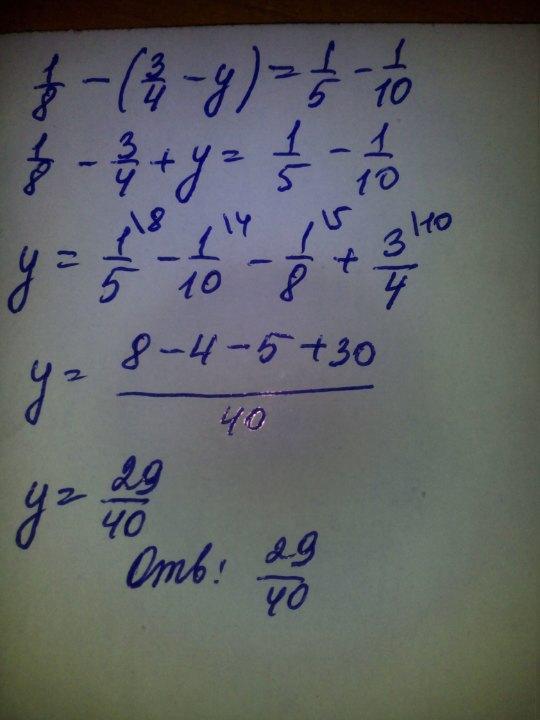 1/8 - (3/4 - y) = 1/5 - 1/10
1/8 - 3/4 + y = 1/5 - 1/10
y = 1\8/5 - 1\4/10 - 1\5/8 + 3\10/4
y = 8 - 4 - 5 + 30/40
y = 29/40
Отв: 29/40